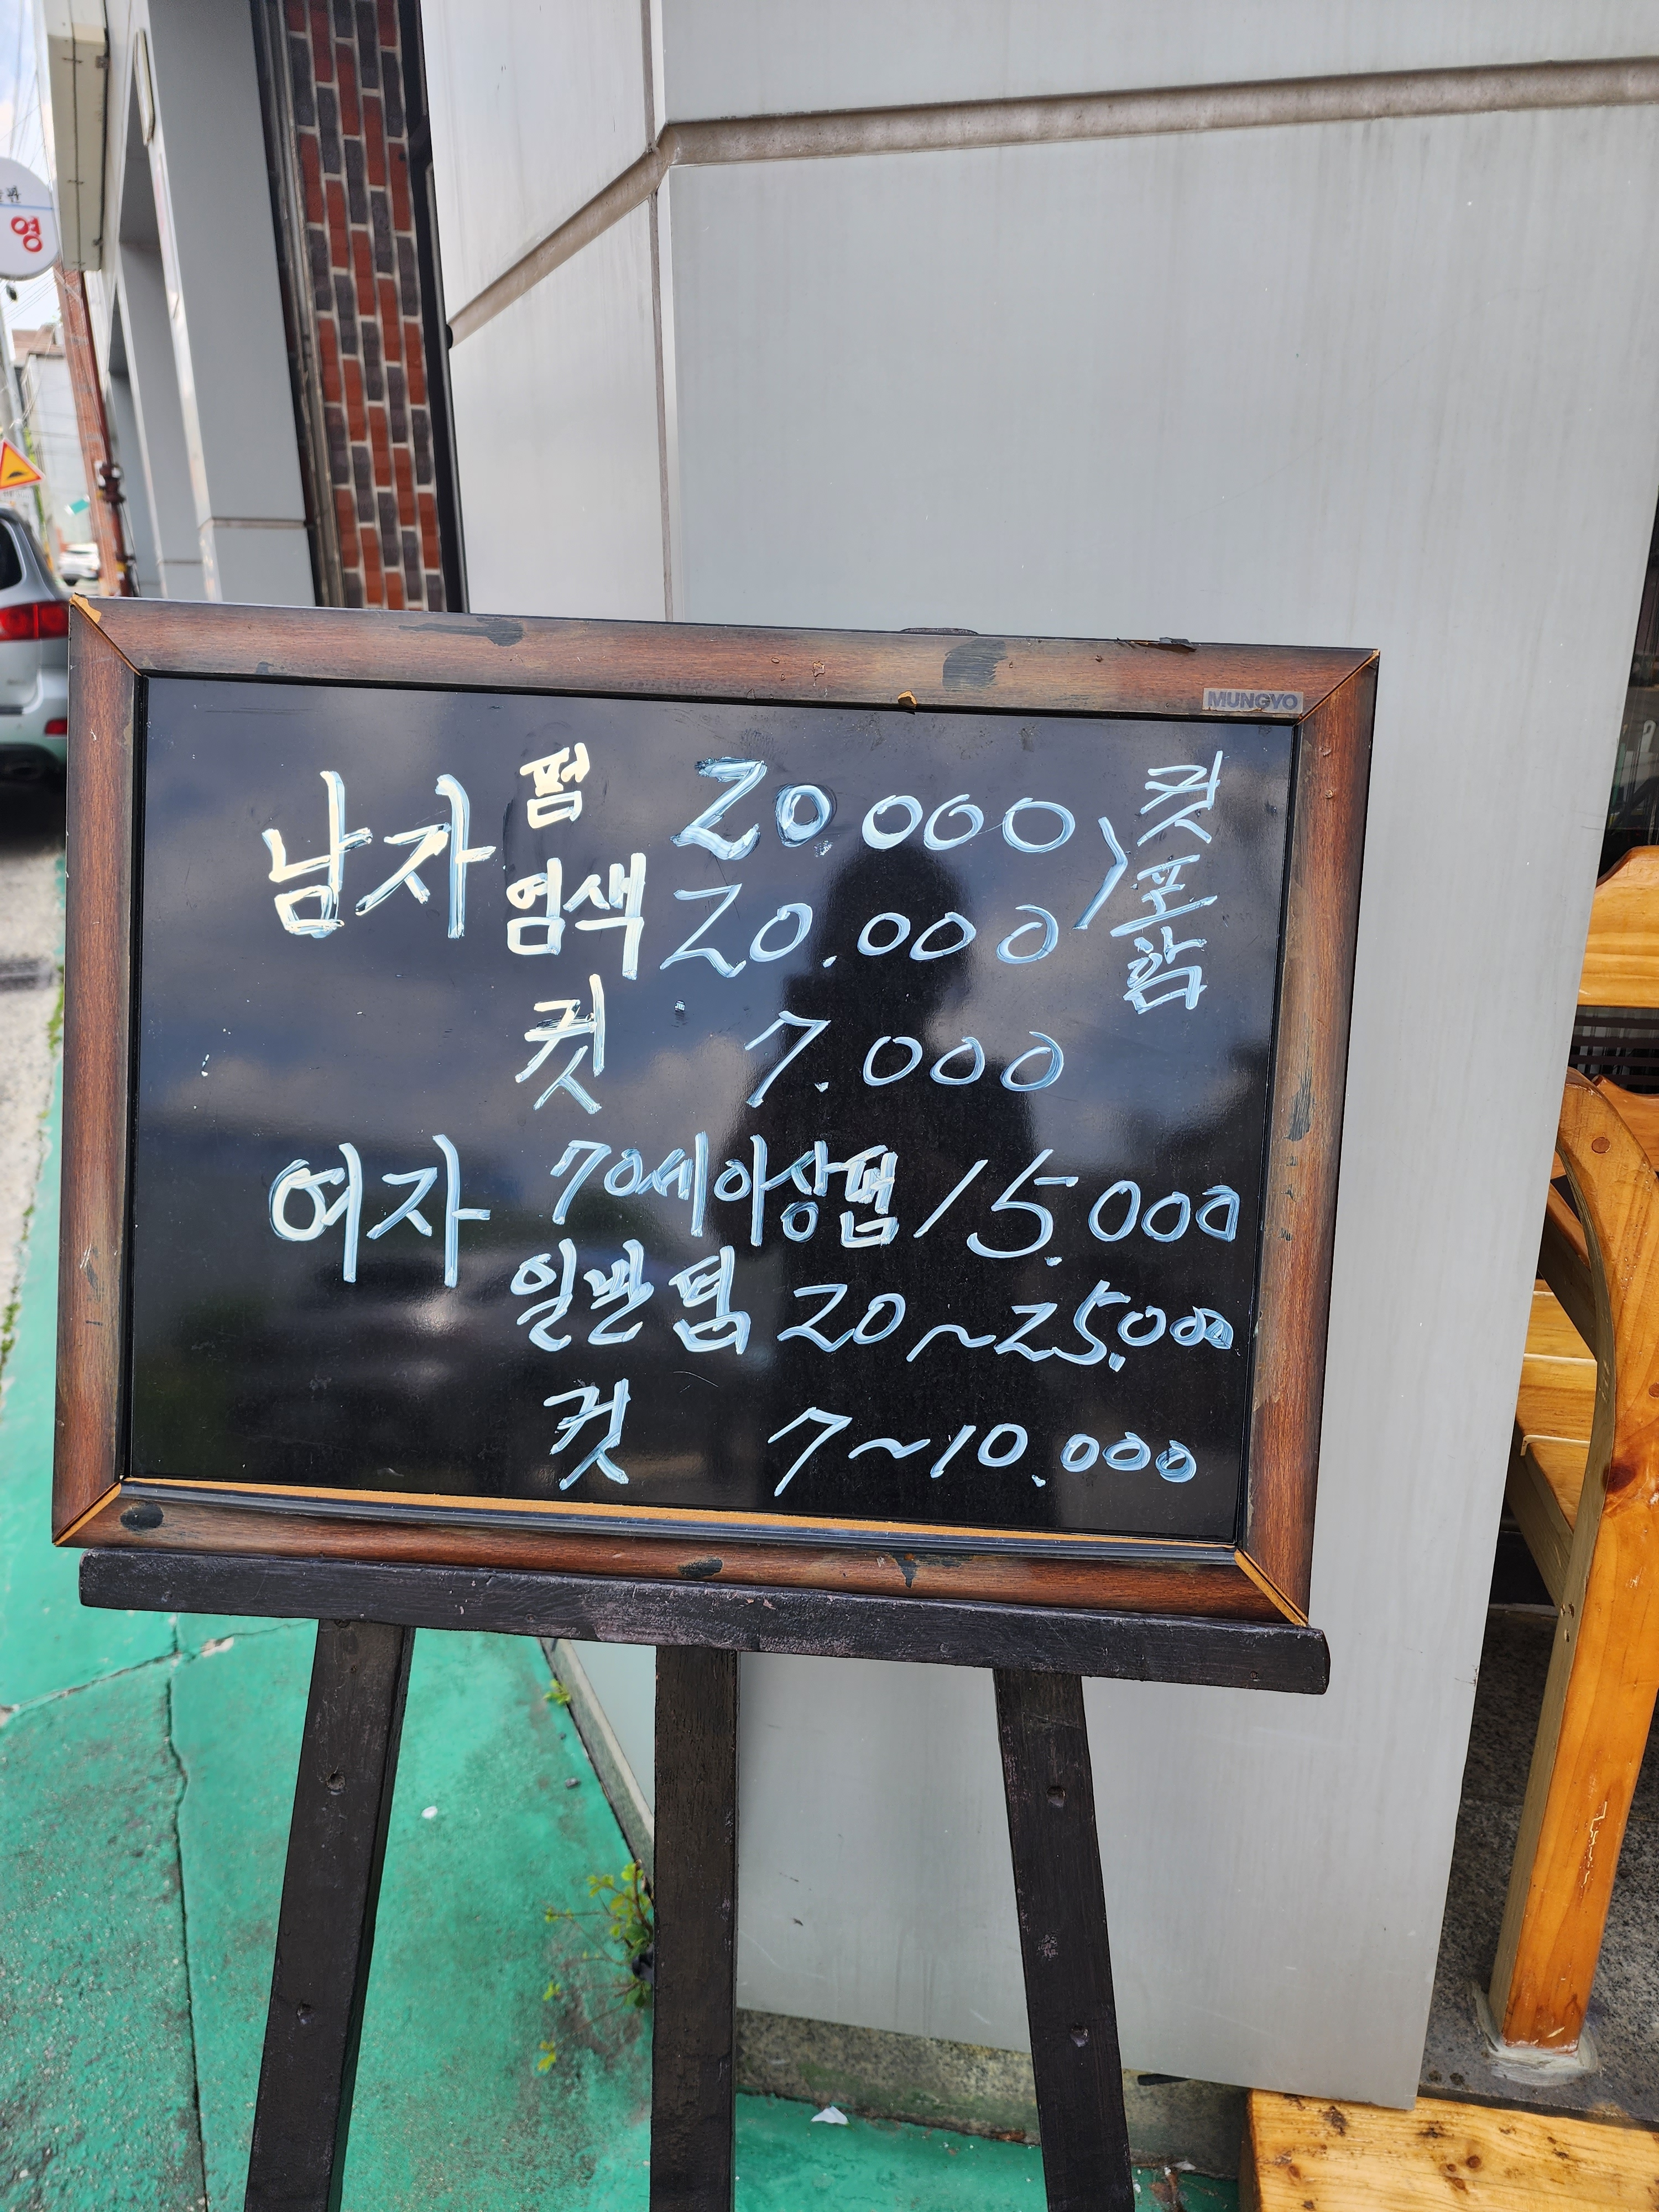 영
MUNGYO
남자 펌 20.000
염색 20.000
컷포함
컷 7.000
여자 70세이상펌 15.000
일반펌 20~25.000
컷 7~10.000